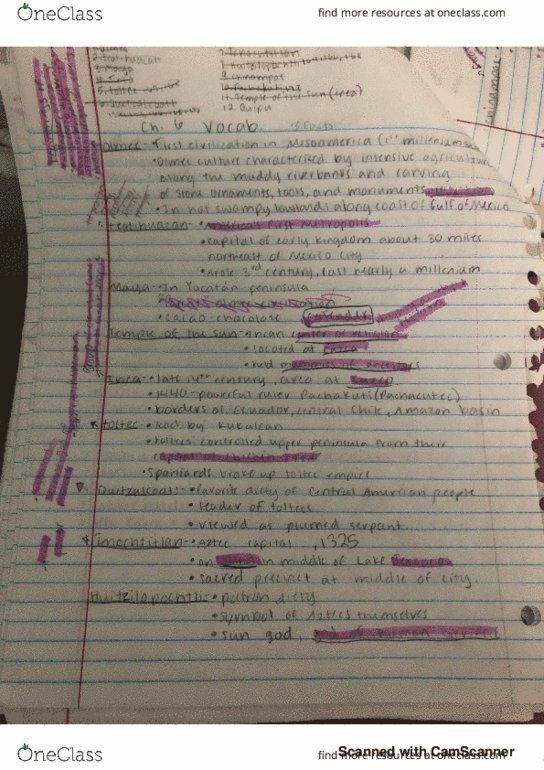 OneClass
find more resources at oneclass.com
2. Teotihuacan
3. Maya
7. Tenochtitlan
8. Huitzilopochtli
9. chinampas
11. Temple of the Sun (Inca)
12. Quipu
Ch. 6 Vocab. 3 Facts
Olmec: First civilization in Mesoamerica (1st millenium
• Olmec culture characterized by intensive agriculture
along the muddy riverbanks and carving
of stone ornaments, tools, and monuments
• In hot swampy lowlands along coast of Gulf of Mexico
Teotihuacan- • America's first metropolis
• capital of early kingdom about 30 miles
northeast of Mexico City
• arose 3rd century, last nearly a millenium
Maya- • In Yucatán peninsula
• cacao chocolate calender
Temple of the sun- • Incan center of religion
• located at Cuzco
• held mummies of ancestors
Inca- • late 14th century, area at Cuzco
• 1440- powerful ruler Pachakuti (Pachacutec)
• borders of Ecuador, central Chile, Amazon basin
Toltec- • Led by Kukulcan
• toltecs controlled upper peninsula from their
capital at Chichén Itzá
• Spaniards broke up toltec empire
Quetzalcoatl- • favorite diety of Central American people
• leader of toltecs
• viewed as plumed serpant.
Tenochtitlan- • Aztec capital, 1325
• on in middle of Lake Texcoco
• sacred precinct at middle of city.
Huitzilopochtli- • patron diety
• symbol of Aztecs themselves
• sun god, god of human sacrifice
OneClass
find more resources at oneclass.com
Scanned with CamScanner